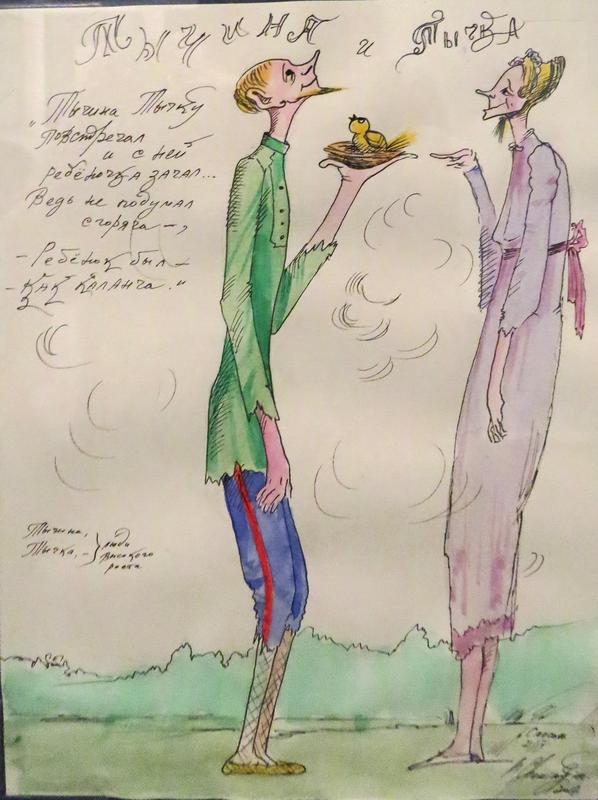 Тычина и Тычка
„Тычина Тычку
повстречал
и с ней
ребёночка зачал...
Ведь не подумал
сгоряча –,
– Ребёнок был –
– как каланча."
Тычина,
Тычка, – } люди
высокого
роста